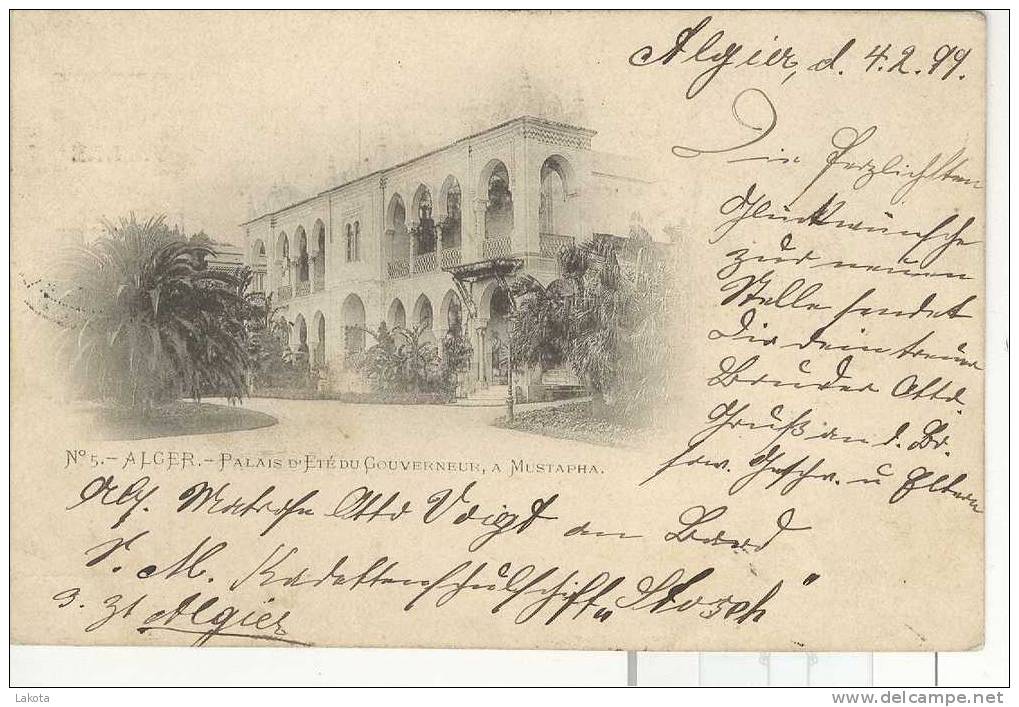 Algier, d. 4.2.99.
Die herzlichsten
Glückwünsche
zur neuen
Stelle sendet
Dir dein treuer
Bruder Otto.
Gruß an d. Br.
sow. Geschw. u Eltern
Nº 5.- ALGER.- PALAIS D'ETÉ DU GOUVERNEUR, A MUSTAPHA.
Abs. Matrose Otto Voigt an Bord
S. M. Kadettenschulschiff „Stosch"
z. Zt Algier
Lakota
www.delcampe.net